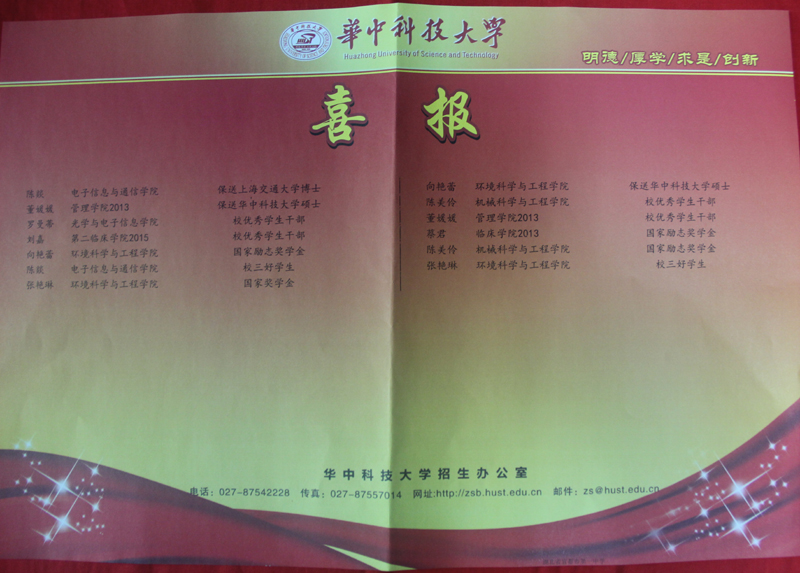 華中科技大学
Huazhong University of Science and Technology
明德/厚学/求是/创新
喜报
陈燚 电子信息与通信学院 保送上海交通大学博士
董媛媛 管理学院2013 保送华中科技大学硕士
罗竞蒂 光学与电子信息学院 校优秀学生干部
刘嘉 第二临床学院2015 校优秀学生干部
向艳蕾 环境科学与工程学院 国家励志奖学金
陈燚 电子信息与通信学院 校三好学生
张艳琳 环境科学与工程学院 国家奖学金
向艳蕾 环境科学与工程学院 保送华中科技大学硕士
陈美伶 机械科学与工程学院 校优秀学生干部
董媛媛 管理学院2013 校优秀学生干部
君 临床学院2013 国家励志奖学金
陈美伶 机械科学与工程学院 国家励志奖学金
张艳琳 环境科学与工程学院 校三好学生
华中科技大学招生办公室
电话：027-87542228 传真：027-87557014 网址:http://zsb.hust.edu.cn 邮件：zs@hust.edu.cn